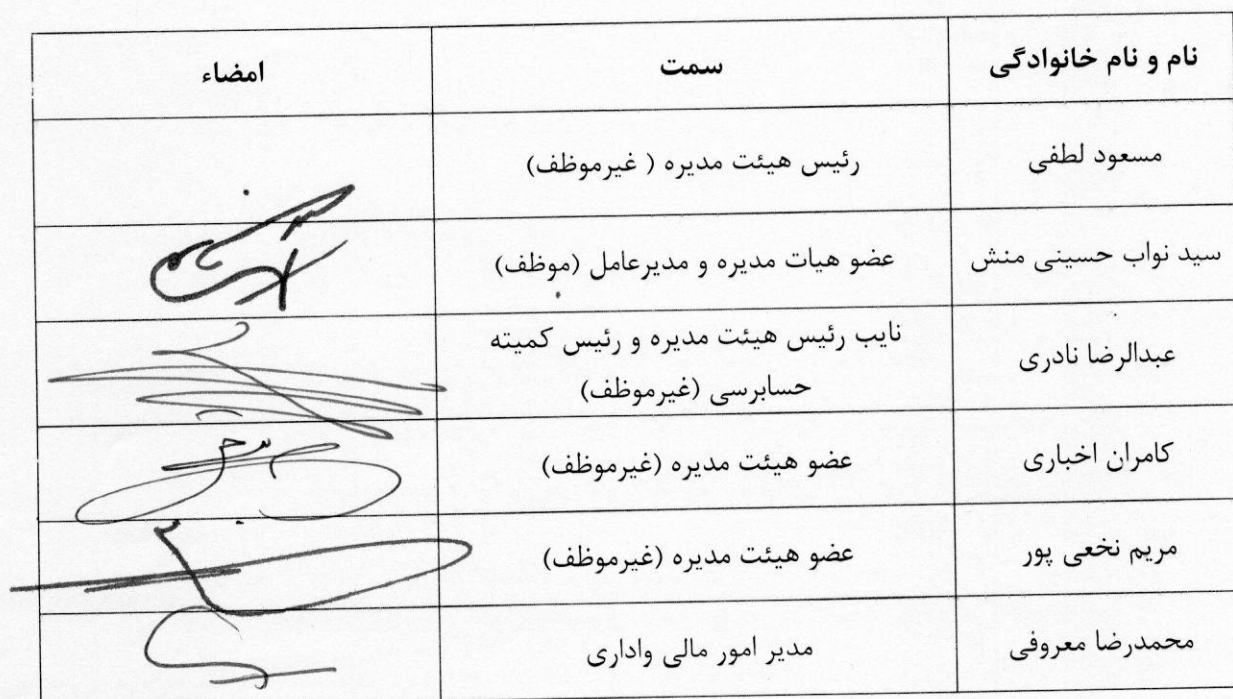 نام و نام خانوادگی سمت امضاء
مسعود لطفی رئیس هیئت مدیره ( غیرموظف)
سید نواب حسینی منش عضو هیات مدیره و مدیرعامل (موظف)
عبدالرضا نادری نایب رئیس هیئت مدیره و رئیس کمیته
حسابرسی (غیرموظف)
کامران اخباری عضو هیئت مدیره (غیرموظف)
مریم نخعی پور عضو هیئت مدیره (غیرموظف)
محمدرضا معروفی مدیر امور مالی واداری